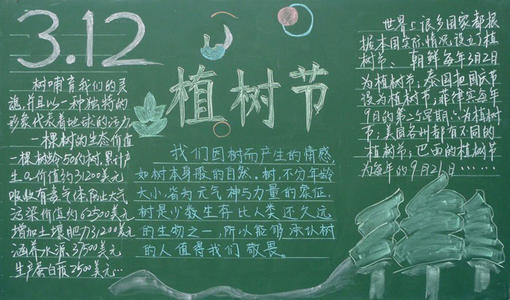 3.12
植树节
树哺育我们的灵
魂,并且以一种独特的
形象代表着地球的活力
一棵树的生态价值
一棵树龄50的树,累计产
生O₂价值约31200美元
吸收有毒气体,防止大气
污染价值约62500美元
增加土壤肥力31200美元
涵养水源37500美元
生产蛋白质2500美元…
我们因树而产生的情感
如树本身般的自然。树,不分年龄
大小,皆为元气神与力量的象征
树是少数生存比人类还久远
的生物之一,所以能够承认树
的人值得我们敬畏。
世界上很多国家都根
据本国实际情况设立了植
树节。朝鲜每年3月2日
为植树节;泰国把国庆节
设为植树节;菲律宾每年
9月的第二个星期六为植树
节;美国各州都有不同的
植树节;巴西的植树节
为每年的9月21日……